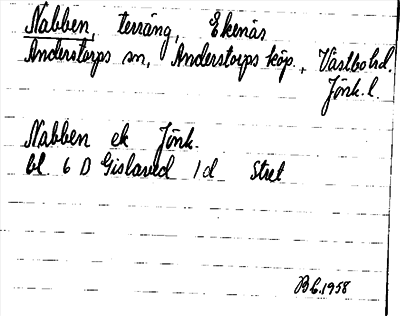 Nabben, terräng, Ekenäs
Anderstorps sn, Anderstorps köp., Västbo hd.
Jönk. l.
Nabben ek Jönk.
bl 6 D Gislaved 1 d Stret
B L. 1958